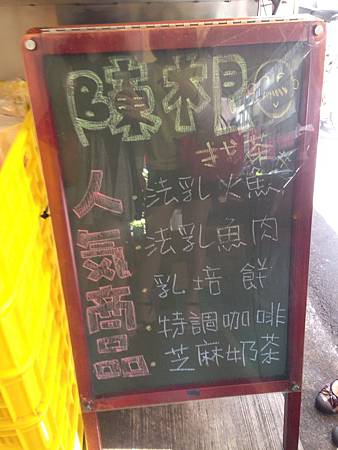 找茶
人氣商品
法乳火魚
法乳魚肉
乳培餅
特調咖啡
芝麻奶茶